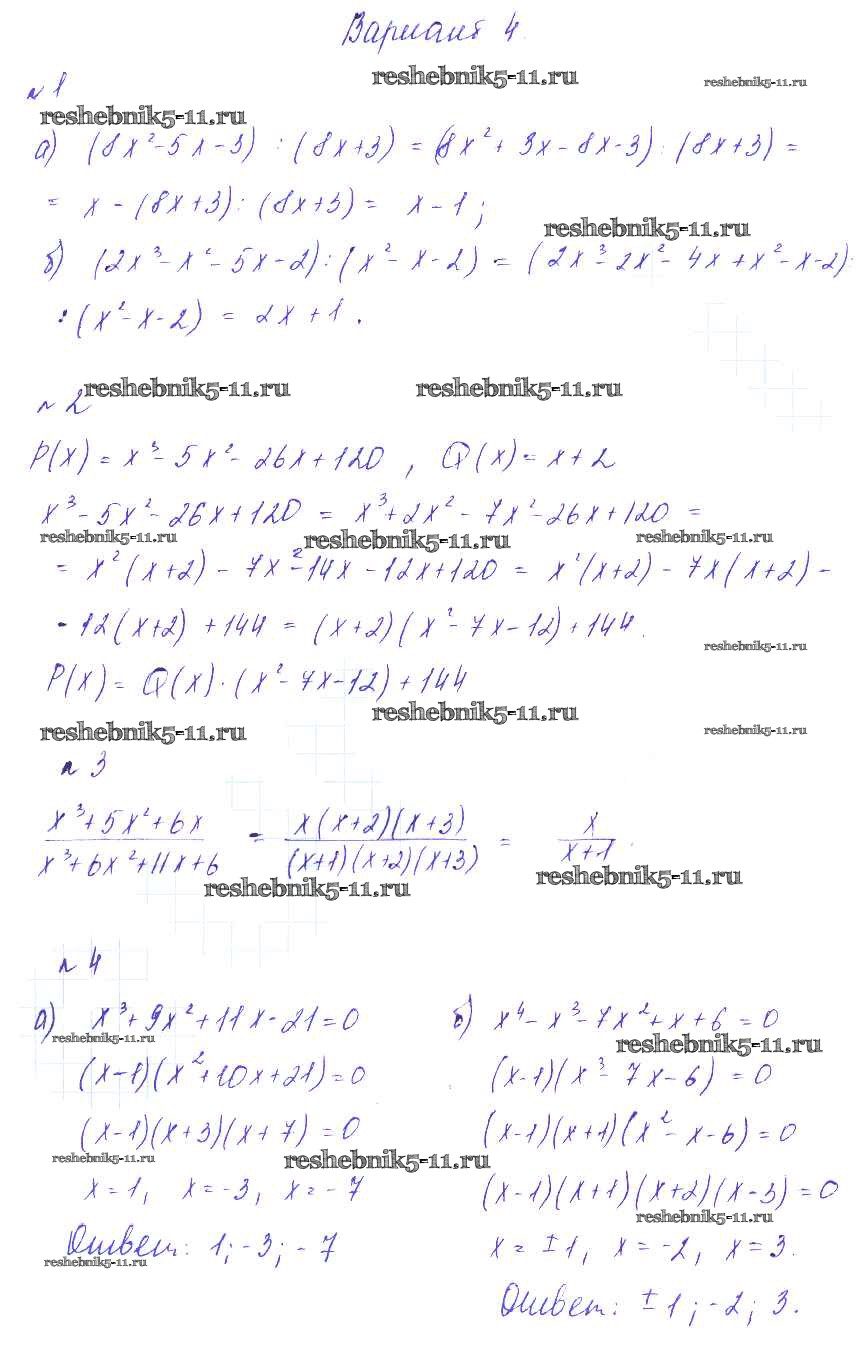 Вариант 4.
reshebnik5-11.ru reshebnik5-11.ru
№ 1
reshebnik5-11.ru
а) (8x² - 5x - 3) : (8x + 3) = (8x² + 3x - 8x - 3) : (8x + 3) =
= x - (8x + 3) : (8x + 3) = x - 1 ;
reshebnik5-11.ru
б) (2x³ - x² - 5x - 2) : (x² - x - 2) = (2x³ - 2x² - 4x + x² - x - 2) :
: (x² - x - 2) = 2x + 1 .
reshebnik5-11.ru reshebnik5-11.ru
№ 2
P(x) = x³ - 5x² - 26x + 120 , Q(x) = x + 2
x³ - 5x² - 26x + 120 = x³ + 2x² - 7x² - 26x + 120 =
reshebnik5-11.ru reshebnik5-11.ru reshebnik5-11.ru
= x² (x + 2) - 7x² - 14x - 12x + 120 = x² (x + 2) - 7x (x + 2) -
- 12 (x + 2) + 144 = (x + 2) (x² - 7x - 12) + 144 .
reshebnik5-11.ru
P(x) = Q(x) · (x² - 7x - 12) + 144
reshebnik5-11.ru reshebnik5-11.ru reshebnik5-11.ru
№ 3
x³ + 5x² + 6x / x³ + 6x² + 11x + 6 = x (x + 2) (x + 3) / (x + 1) (x + 2) (x + 3) = x / x + 1 .
reshebnik5-11.ru reshebnik5-11.ru
№ 4
а) x³ + 9x² + 11x - 21 = 0
reshebnik5-11.ru
(x - 1) (x² + 10x + 21) = 0
(x - 1) (x + 3) (x + 7) = 0
reshebnik5-11.ru reshebnik5-11.ru
x = 1, x = -3, x = -7
Ответ: 1; -3; -7
reshebnik5-11.ru
б) x⁴ - x³ - 7x² + x + 6 = 0
reshebnik5-11.ru
(x - 1) (x³ - 7x - 6) = 0
(x - 1) (x + 1) (x² - x - 6) = 0
(x - 1) (x + 1) (x + 2) (x - 3) = 0
reshebnik5-11.ru
x = ±1, x = -2, x = 3.
Ответ: ±1; -2; 3.